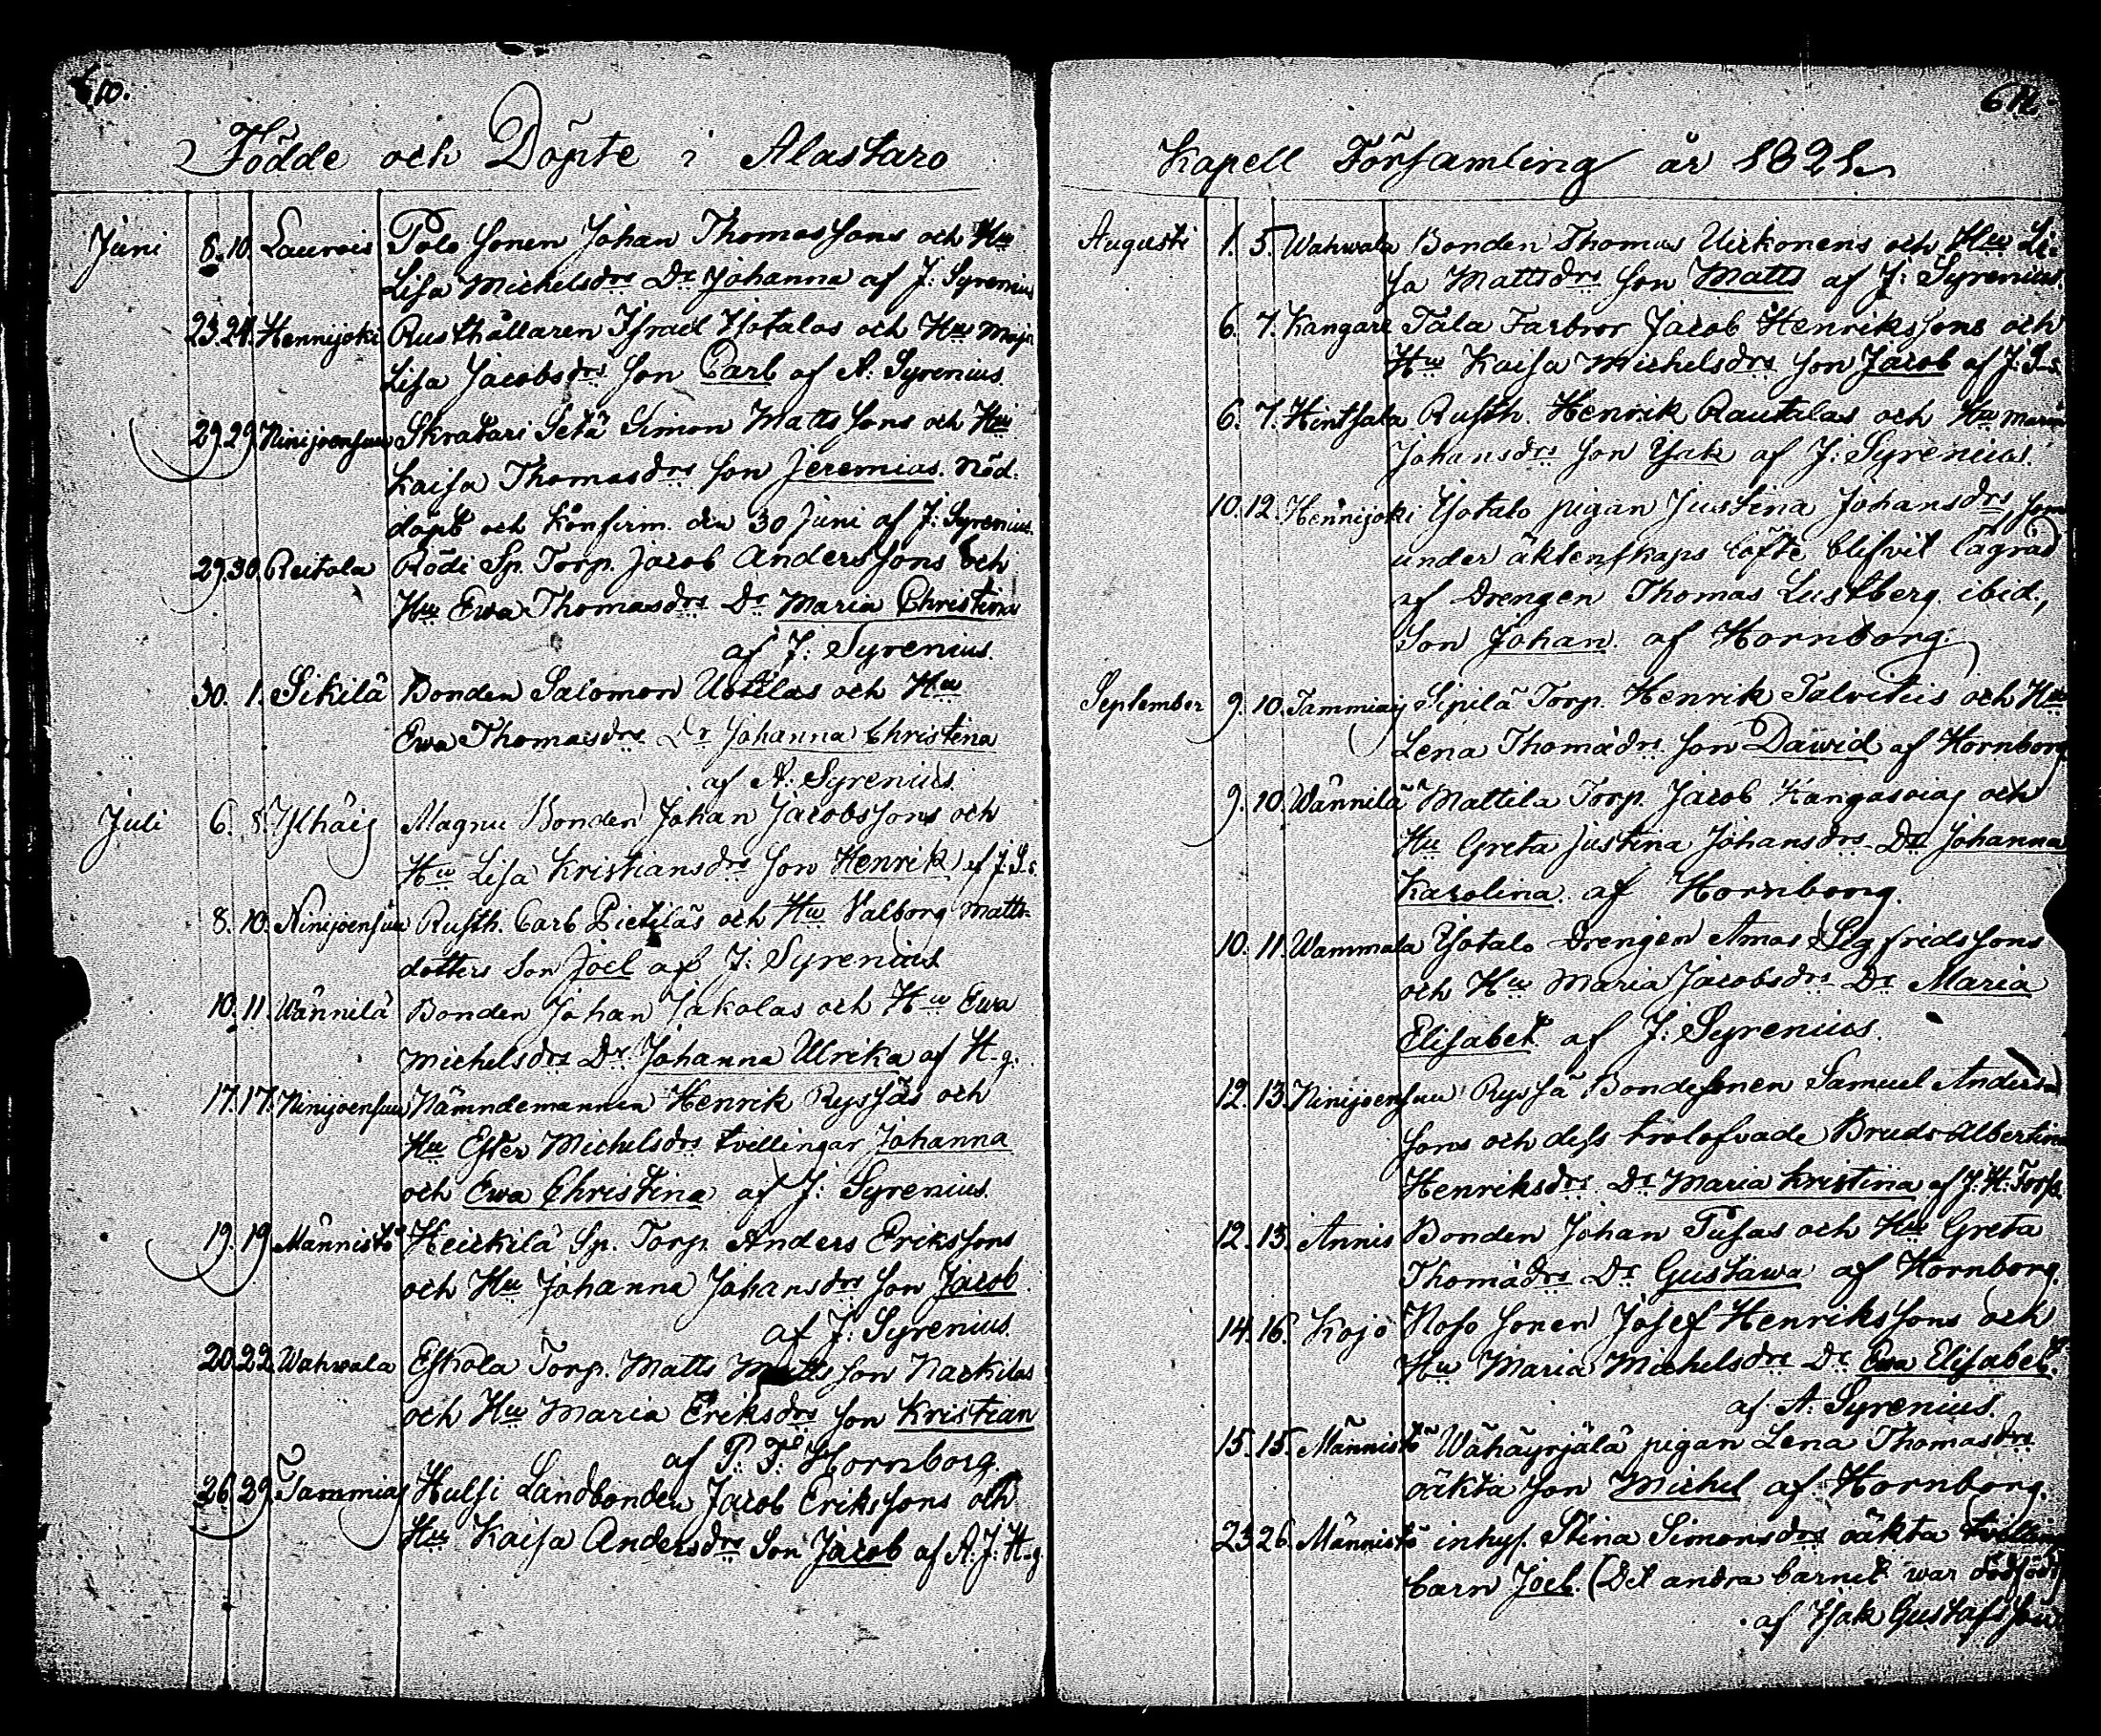 610.
Födde och Döpte i Alastaro
Juni 8. 10. Laurois Polo Sonen Johan Thomassons och Hu
Lisa Michelsdrs Dr Johanna af J: Syrenius
23. 24. Hennijoki Rusthållaren Israel Isotalos och Hu Maja
Lisa Jacobsdrs Son Carl af A: Syrenius.
29. 29. Ninijoensuu Skratari Setä Simon Mattssons och Hu
Kaisa Thomasdrs Son Jeremias. Nöd:
döpt och Konfirm. den 30 Juni af J: Syrenius.
29. 30. Reitola Rödi Sp. Torp. Jacob Anderssons och
Hu Ewa Thomasdrs Dr Maria Christina
af J: Syrenius.
30. 1. Sikilä Bonden Salomon Uotilas och Hu
Ewa Thomasdrs Dr Johanna Christina
af A: Syrenius.
Juli 6. 8. Ylhäis Magnu Bonden Johan Jacobssons och
Hu Lisa Kristiansdrs Son Henrik af J. S-s.
8. 10. Ninijoensuu Rusth. Carl Pietiläs och Hu Valborg Matts-
dotters Son Joel af J: Syrenius.
10. 11. Wännilä Bonden Johan Jakolas och Hu Ewa
Michelsdrs Dr Johanna Ulrika af H-g.
17. 17. Ninijoensuu Nämndemannen Henrik Ryssäs och
Hu Ester Michelsdrs tvillingar Johanna
och Ewa Christina af J: Syrenius.
19. 19. Männistö Heickilä Sp. Torp. Anders Erikssons
och Hu Johanna Johansdrs Son Jacob
af J: Syrenius.
20. 22. Wahwala Eskola Torp. Matts Mattsson Narkilas
och Hu Maria Eriksdrs Son Kristian
af P. F. Hornborg.
26. 29. Tammiais Hulsi Landbonden Jacob Erikssons och
Hu Kaisa Andersdrs Son Jacob af A. J. H-g.
611
Kapell Församling år 1821.
Augusti 1. 5. Wahwala Bonden Thomas Uirkonens och Hu Li-
sa Mattsdrs Son Matts af J: Syrenius.
6. 7. Kangare Tala Farbror Jacob Henrikssons och
Hu Kaisa Michelsdrs Son Jacob af J: S-s.
6. 7. Hintsala Rusth. Henrik Rautalas och Hu Maria
Johansdrs Son Isak af J: Syrenius.
10. 12. Hennijoki Isotalo pigan Justina Johansdrs, som
under äktenskaps löfte blifvit lägrad
af Drengen Thomas Lustberg ibid.,
Son Johan. af Hornborg.
September 9. 10. Tammiais Sipilä Torp. Henrik Talvitiis och Hu
Lena Thomädrs Son Dawid af Hornborg
9. 10. Wännilä Mattila Torp. Jacob Kangasoias och
Hu Greta Justina Johansdrs Dr Johanna
Karolina. af Hornborg.
10. 11. Wammala Isotalo Drengen Amos Sigfridssons
och Hu Maria Jacobsdrs Dr Maria
Elisabet. af J: Syrenius.
12. 13. Ninijoensuu Ryssä Bondesonen Samuel Anders
sons och dess trolofvade Bruds Albertina
Henriksdrs Dr Maria Kristina af J. H. Forss.
12. 13. Annis Bonden Johan Tusas och Hu Greta
Thomädrs Dr Gustawa af Hornborg.
14. 16. Kojo Noso Sonen Josef Henrikssons och
Hu Maria Michelsdrs Dr Ewa Elisabet.
af A: Syrenius.
15. 15. Männistö Wähäyrjälä pigan Lena Thomasdrs
oäkta Son Michel af Hornborg.
23. 26. Männistö inhys. Stina Simonsdrs oäkta tvilling
barn Joel. (Det andra barnet war dödfödt)
af Isak Gustafsson